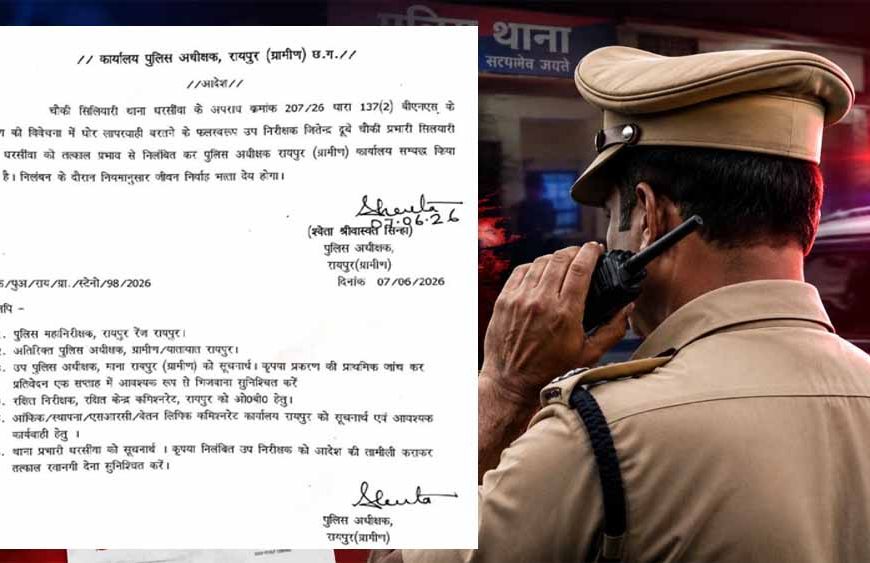 पुलिस थाना
सत्यमेव जयते
// कार्यालय पुलिस अधीक्षक, रायपुर (ग्रामीण) छ.ग.//
//आदेश//
चौकी सिलियारी थाना धरसींवा के अपराध क्रमांक 207/26 धारा 137(2) बीएनएस् के
की विवेचना में घोर लापरवाही बरतने के फलस्वरूप उप निरीक्षक जितेन्द्र दूबे चौकी प्रभारी सिलयारी
धरसींवा को तत्काल प्रभाव से निलंबित कर पुलिस अधीक्षक रायपुर (ग्रामीण) कार्यालय सम्बद्ध किया
है। निलंबन के दौरान नियमानुसार जीवन निर्वाह भत्ता देय होगा।
07.06.26
(श्वेता श्रीवास्तव सिन्हा)
पुलिस अधीक्षक,
रायपुर(ग्रामीण)
/पुअ/राय/ग्रा./स्टेनो/98/2026 दिनांक 07/06/2026
पुलिस महानिरीक्षक, रायपुर रेंज रायपुर।
अतिरिक्त पुलिस अधीक्षक, ग्रामीण/यातायात रायपुर।
उप पुलिस अधीक्षक, माना रायपुर (ग्रामीण) को सूचनार्थ। कृपया प्रकरण की प्राथमिक जांच कर
प्रतिवेदन एक सप्ताह में आवश्यक रूप से भिजवाना सुनिश्चित करें
रक्षित निरीक्षक, रक्षित केन्द्र कमिश्नरेट, रायपुर को ओ0बी0 हेतु।
आंकिक/स्थापना/एसआरसी/वेतन लिपिक कमिश्नरेट कार्यालय रायपुर को सूचनार्थ एवं आवश्यक
कार्यवाही हेतु ।
थाना प्रभारी धरसींवा को सूचनार्थ । कृपया निलंबित उप निरीक्षक को आदेश की तामीली कराकर
तत्काल रवानगी देना सुनिश्चित करें।
पुलिस अधीक्षक,
रायपुर(ग्रामीण)